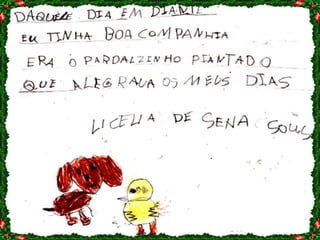 DAQUELE DIA EM DIANTE
EU TINHA BOA COMPANHIA
ERA O PARDALZINHO PIANTADO
QUE ALEGRAVA OS MEUS DIAS
LICELIA DE SENA SOUSA